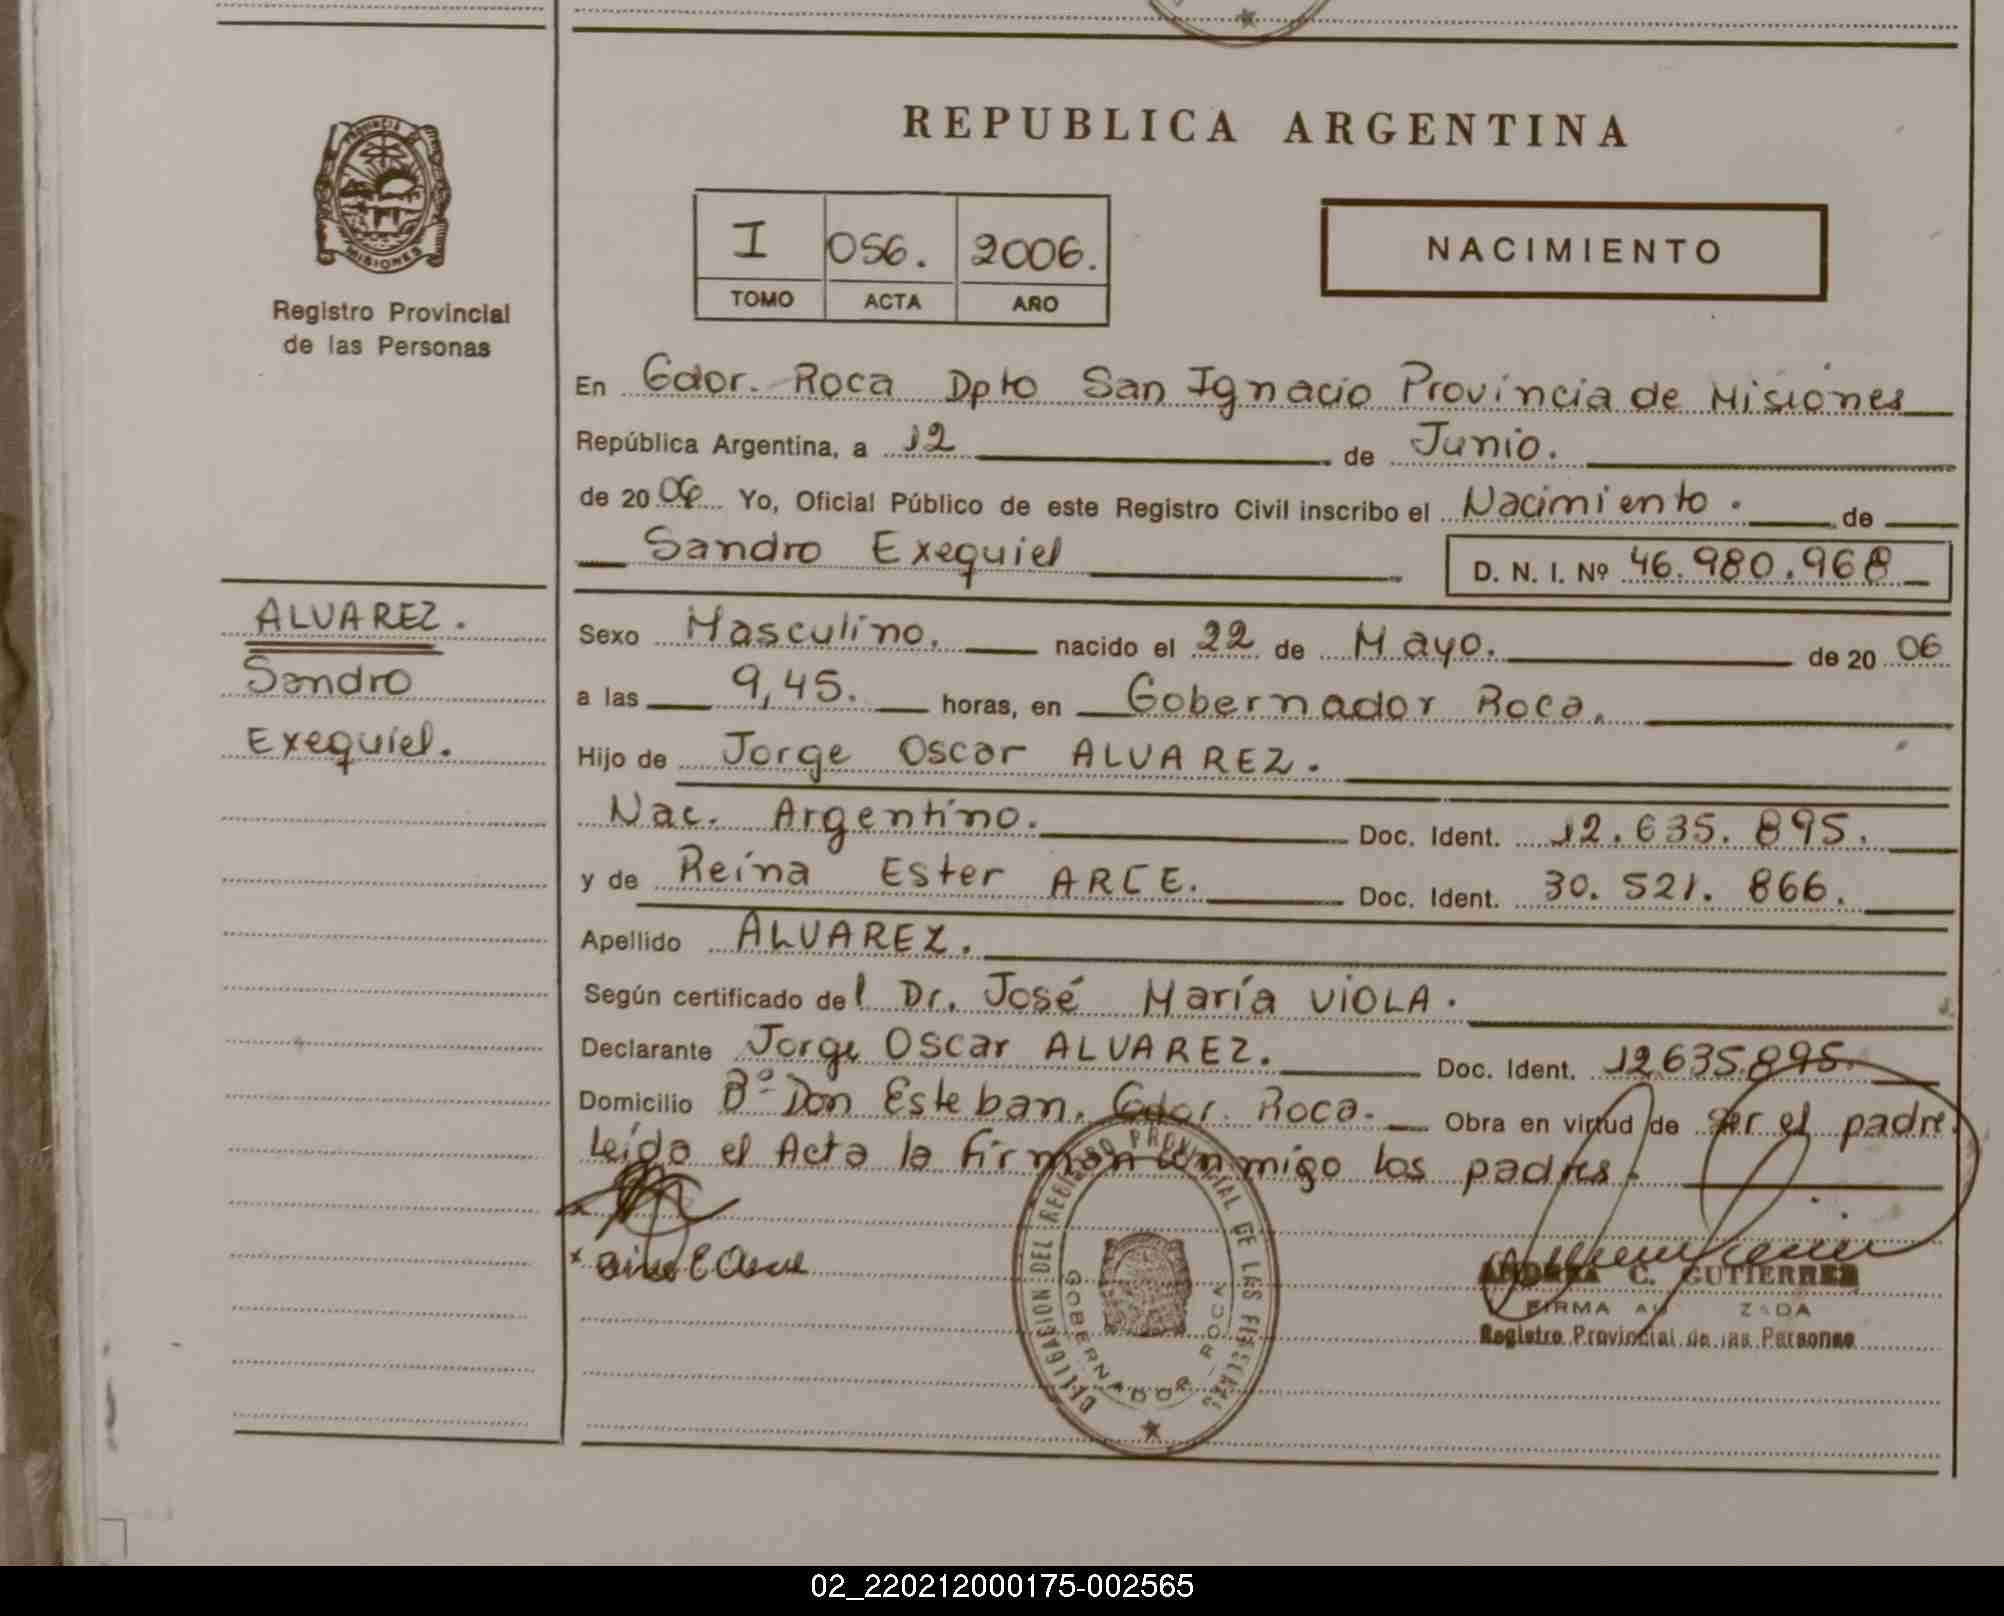 PROVINCIA
MISIONES
Registro Provincial
de las Personas
ALVAREZ.
Sandro
Exequiel.
REPUBLICA ARGENTINA
I 056. 2006.
TOMO ACTA AÑO
NACIMIENTO
En Gdor. Roca Dpto San Ignacio Provincia de Misiones
República Argentina, a 12 de Junio.
de 2006 Yo, Oficial Público de este Registro Civil inscribo el Nacimiento. de
Sandro Exequiel D. N. I. Nº 46.980.968
Sexo Masculino. nacido el 22 de Mayo. de 2006
a las 9,45. horas, en Gobernador Roca.
Hijo de Jorge Oscar ALVAREZ.
Nac. Argentino. Doc. Ident. 12.635.895.
y de Reina Ester ARCE. Doc. Ident. 30.521.866.
Apellido ALVAREZ.
Según certificado del Dr. José María VIOLA.
Declarante Jorge Oscar ALVAREZ. Doc. Ident. 12635.895.
Domicilio Bº Don Esteban. Gdor. Roca. Obra en virtud de ser el padre.
Leída el Acta la firman conmigo los padres.
DELEGACION DEL REGISTRO PROVINCIAL DE LAS PERSONAS
GOBERNADOR ROCA
C. GUTIERREZ
FIRMA
Registro Provincial de las Personas
02_220212000175-002565